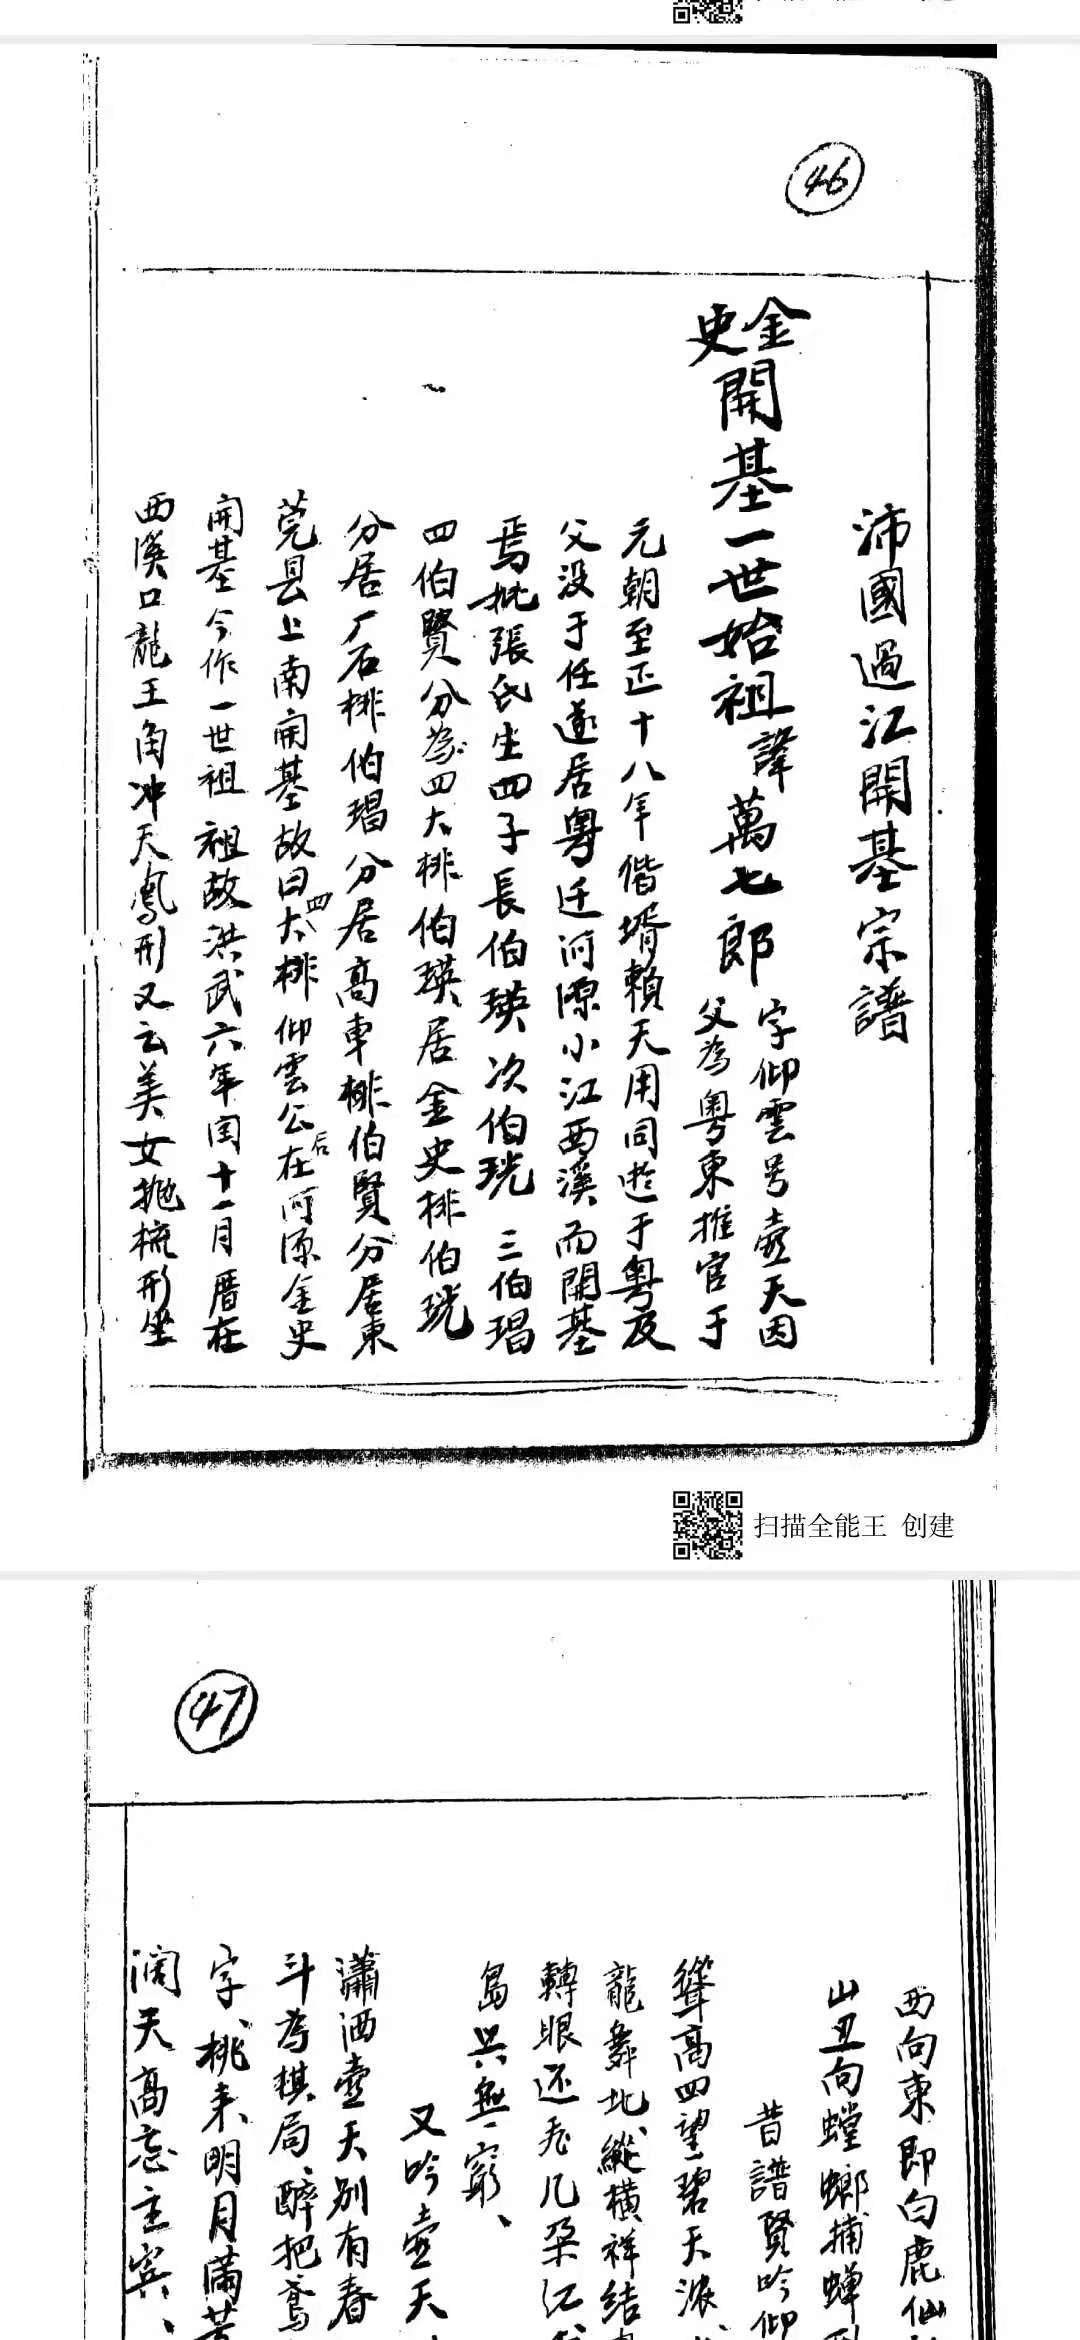 46
沛國過江開基宗譜
金史開基一世始祖諱萬七郎
字仰雲号壺天因
父為粤東推官于
元朝至正十八年偕壻賴天用同遊于粤及
父没于任遂居粤迁河源小江西溪而開基
焉妣張氏生四子長伯瑛次伯珖三伯琩
四伯賢分為四大排伯瑛居金史排伯珖
分居厂石排伯琩分居高車排伯賢分居東
莞县上南開基故曰四大排仰雲公后在河源金史
開基今作一世祖 祖故洪武六年闰十一月厝在
西溪口龍王角冲天鳳形又云美女抛梳形坐
扫描全能王 创建
47
西向東即白鹿仙
山丑向螳螂捕蝉
昔譜賢吟仰
聳高四望碧天浓
龍舞北縱横祥结
轉眼还看几朶红
島興無窮、
又吟壺天
瀟洒壺天别有春
斗為棋局、醉把鸢
字、桃来、明月滿
阔天高忘主宾、